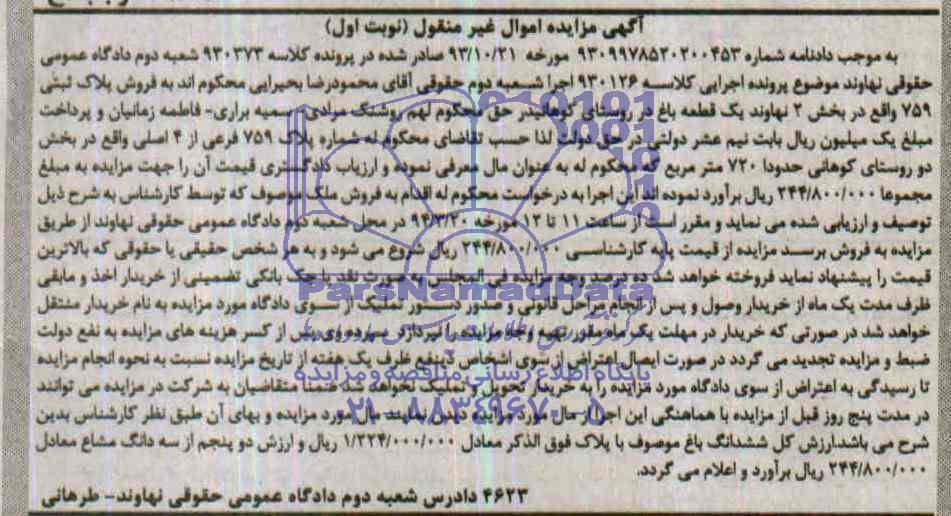 آگهی مزایده اموال غیر منقول (نوبت اول)
به موجب دادنامه شماره ۹۳۰۹۹۷۸۵۲۰۲۰۰۴۵۳ مورخه ۹۳/۱۰/۲۱ صادر شده در پرونده کلاسه ۹۳۰۳۷۳ شعبه دوم دادگاه عمومی
حقوقی نهاوند موضوع پرونده اجرایی کلاسه ۹۳۰۱۲۶ اجرا شعبه دوم حقوقی آقای محمودرضا بحیرایی محکوم اند به فروش پلاک ثبتی
۷۵۹ واقع در بخش ۲ نهاوند یک قطعه باغ در روستای کوهانیدر حق محکوم لهم روشنک میلادی سمیه براری- فاطمه زمانیان و پرداخت
مبلغ یک میلیون ریال بابت نیم عشر دولتی در حق دولت لذا حسب تقاضای محکوم له شماره پلاک ۷۵۹ فرعی از ۴ اصلی واقع در بخش
دو روستای کوهانی حدودا ۷۲۰ متر مربع که محکوم له به عنوان مال معرفی نموده و ارزیاب دادگستری قیمت آن را جهت مزایده به مبلغ
مجموعا ۲۴۴/۸۰۰/۰۰۰ ریال برآورد نموده اند این اجرا به درخواست محکوم له اقدام به فروش ملک موصوف که توسط کارشناس به شرح ذیل
توصیف و ارزیابی شده می نماید و مقرر است از ساعت ۱۱ تا ۱۲ مورخه ۹۴/۳/۲۰ در محل شعبه دوم دادگاه عمومی حقوقی نهاوند از طریق
مزایده به فروش برسد مزایده از قیمت پایه کارشناسی ۲۴۴/۸۰۰/۰۰۰ ریال شروع می شود و به هر شخص حقیقی یا حقوقی که بالاترین
قیمت را پیشنهاد نماید فروخته خواهد شد ده درصد وجه مزایده فی المجلس به صورت نقد یا چک بانکی تضمینی از خریدار اخذ و مابقی
ظرف مدت یک ماه از خریدار وصول و پس از انجام مراحل قانونی و صدور دستور تملیک از سوی دادگاه مورد مزایده به نام خریدار منتقل
خواهد شد در صورتی که خریدار در مهلت یک ماه مقرر بقیه وجه مزایده را نپردازد سپرده وی پس از کسر هزینه های مزایده به نفع دولت
ضبط و مزایده تجدید می گردد در صورت ایصال اعتراض از سوی اشخاص ذینفع ظرف یک هفته از تاریخ مزایده نسبت به نحوه انجام مزایده
تا رسیدگی به اعتراض از سوی دادگاه مورد مزایده را به خریدار تحویل و تملیک نخواهد شد ضمنا متقاضیان به شرکت در مزایده می توانند
در مدت پنج روز قبل از مزایده با هماهنگی این اجرا از مال مورد مزایده دیدن نمایند مال مورد مزایده و بهای آن طبق نظر کارشناس بدین
شرح می باشدارزش کل ششدانگ باغ موصوف با پلاک فوق الذکر معادل ۱/۲۲۴/۰۰۰/۰۰۰ ریال و ارزش دو پنجم از سه دانگ مشاع معادل
۲۴۴/۸۰۰/۰۰۰ ریال برآورد و اعلام می گردد.
۴۶۲۳ دادرس شعبه دوم دادگاه عمومی حقوقی نهاوند- طرهانی
ParsNamadData
پایگاه اطلاع رسانی مناقصه و مزایده
۰۲۱-۸۸۳۴۹۶۷۰-۵